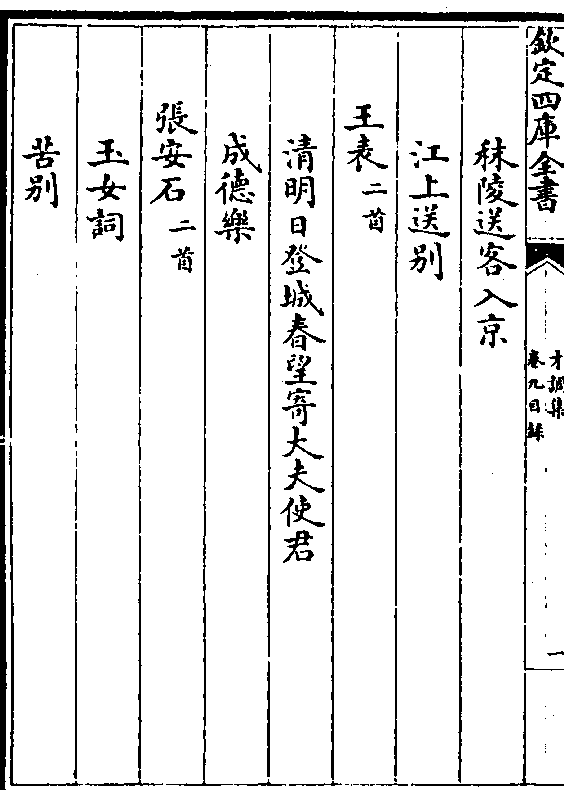 欽定四庫全書
才調集
卷九目録
一
秣陵送客入京
江上送别
王表二首
清明日登城春望寄大夫使君
成德樂
張安石二首
玉女詞
苦别